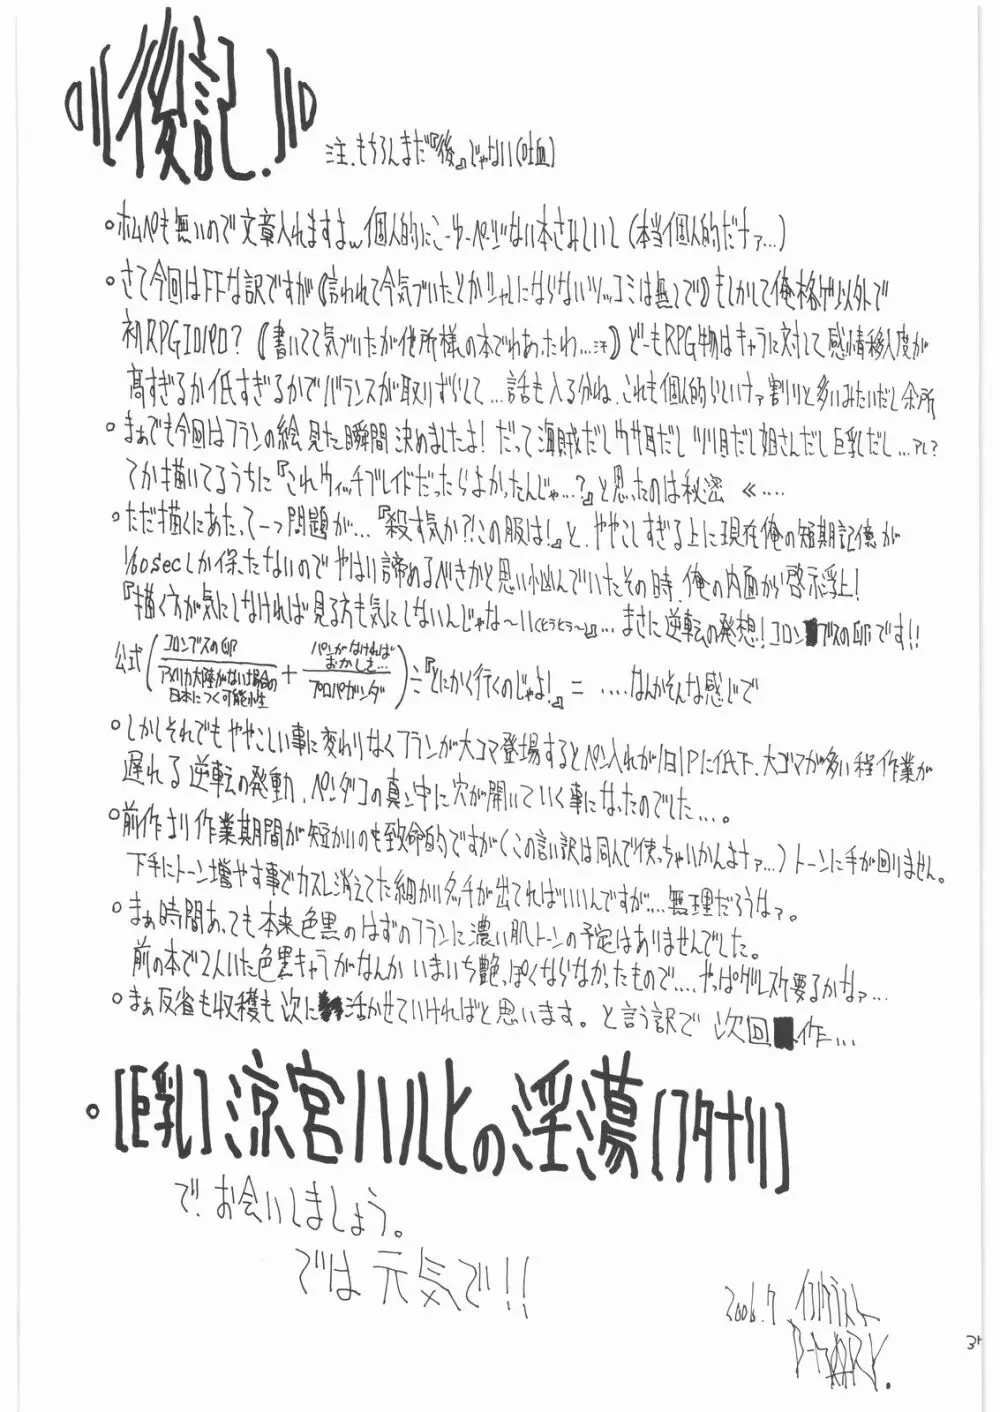 後記.
注.もちろんまだ『後』じゃない(吐血)
○ホムペも無いので文章入れますよw個人的にこーゆーページない本さみしいし(本当個人的だナァ…)
○さて今回はFFな訳ですが《言われて今気づいたとかシャレにならないツッコミは無しで》もしかして俺、格ゲ以外で
初RPGエロパロ?《書いてて気づいたが他所様の本でわあったわ…汗》どーもRPG物はキャラに対して感情移入度が
高すぎるか低すぎるかでバランスが取りずらくて…話も入る分ね、これも個人的らしいナァ割りと多いみたいだし余所
○まぁでも今回はフランの絵見た瞬間決めましたよ!だって海賊だしウサ耳だしツリ目だし姐さんだし巨乳だし…アレ?
てか描いてるうちに『これウィッチブレイドだったらよかったんじゃ…?』と思ったのは秘密《….
○ただ描くにあたって一つ問題が…『殺す気か?!この服は!』と、ややこしすぎる上に現在俺の短期記憶が
1/60secしか保たないのでやはり諦めるべきかと思い悩んでいたその時、俺の内面から啓示浮上!
『描く方が気にしなければ見る方も気にしないんじゃな〜い(とうとう〜)』…まさに逆転の発想!コロンブスの卵です!!
公式(コロンブスの卵/アメリカ大陸がない場合の日本につく可能性+パンがなければおかしを…/プロパガンダ)÷『とにかく行くのじゃよ!』=….なんかそんな感じで
○しかしそれでもややこしい事に変わりなくフランが大コマ登場するとペン入れが1日1Pに低下、大ゴマが多い程作業が
遅れる逆転の発動、ペンダコの真ン中に穴が開いていく事になったのでした…。
○前作より作業期間が短かいのも致命的ですが(この言い訳は同人で使っちゃいかんよナァ…)トーンに手が回りません。
下手にトーン増やす事でカスレ消えてた細かいタッチが出てればいいんですが….無理だろうなァ。
○まぁ時間あっても本来色黒のはずのフランに濃い肌トーンの予定はありませんでした。
前の本で2人いた色黒キャラがなんかいまいち艶っぽくならなかったもので….やっぱグレスケ要るかなァ…
○まぁ反省も収穫も次に活かせていければと思います。と言う訳で 次回作…
○[巨乳]涼宮ハルヒの淫蕩[フタナリ]
で、お会いしましょう。
では元気で!!
2006.7
3